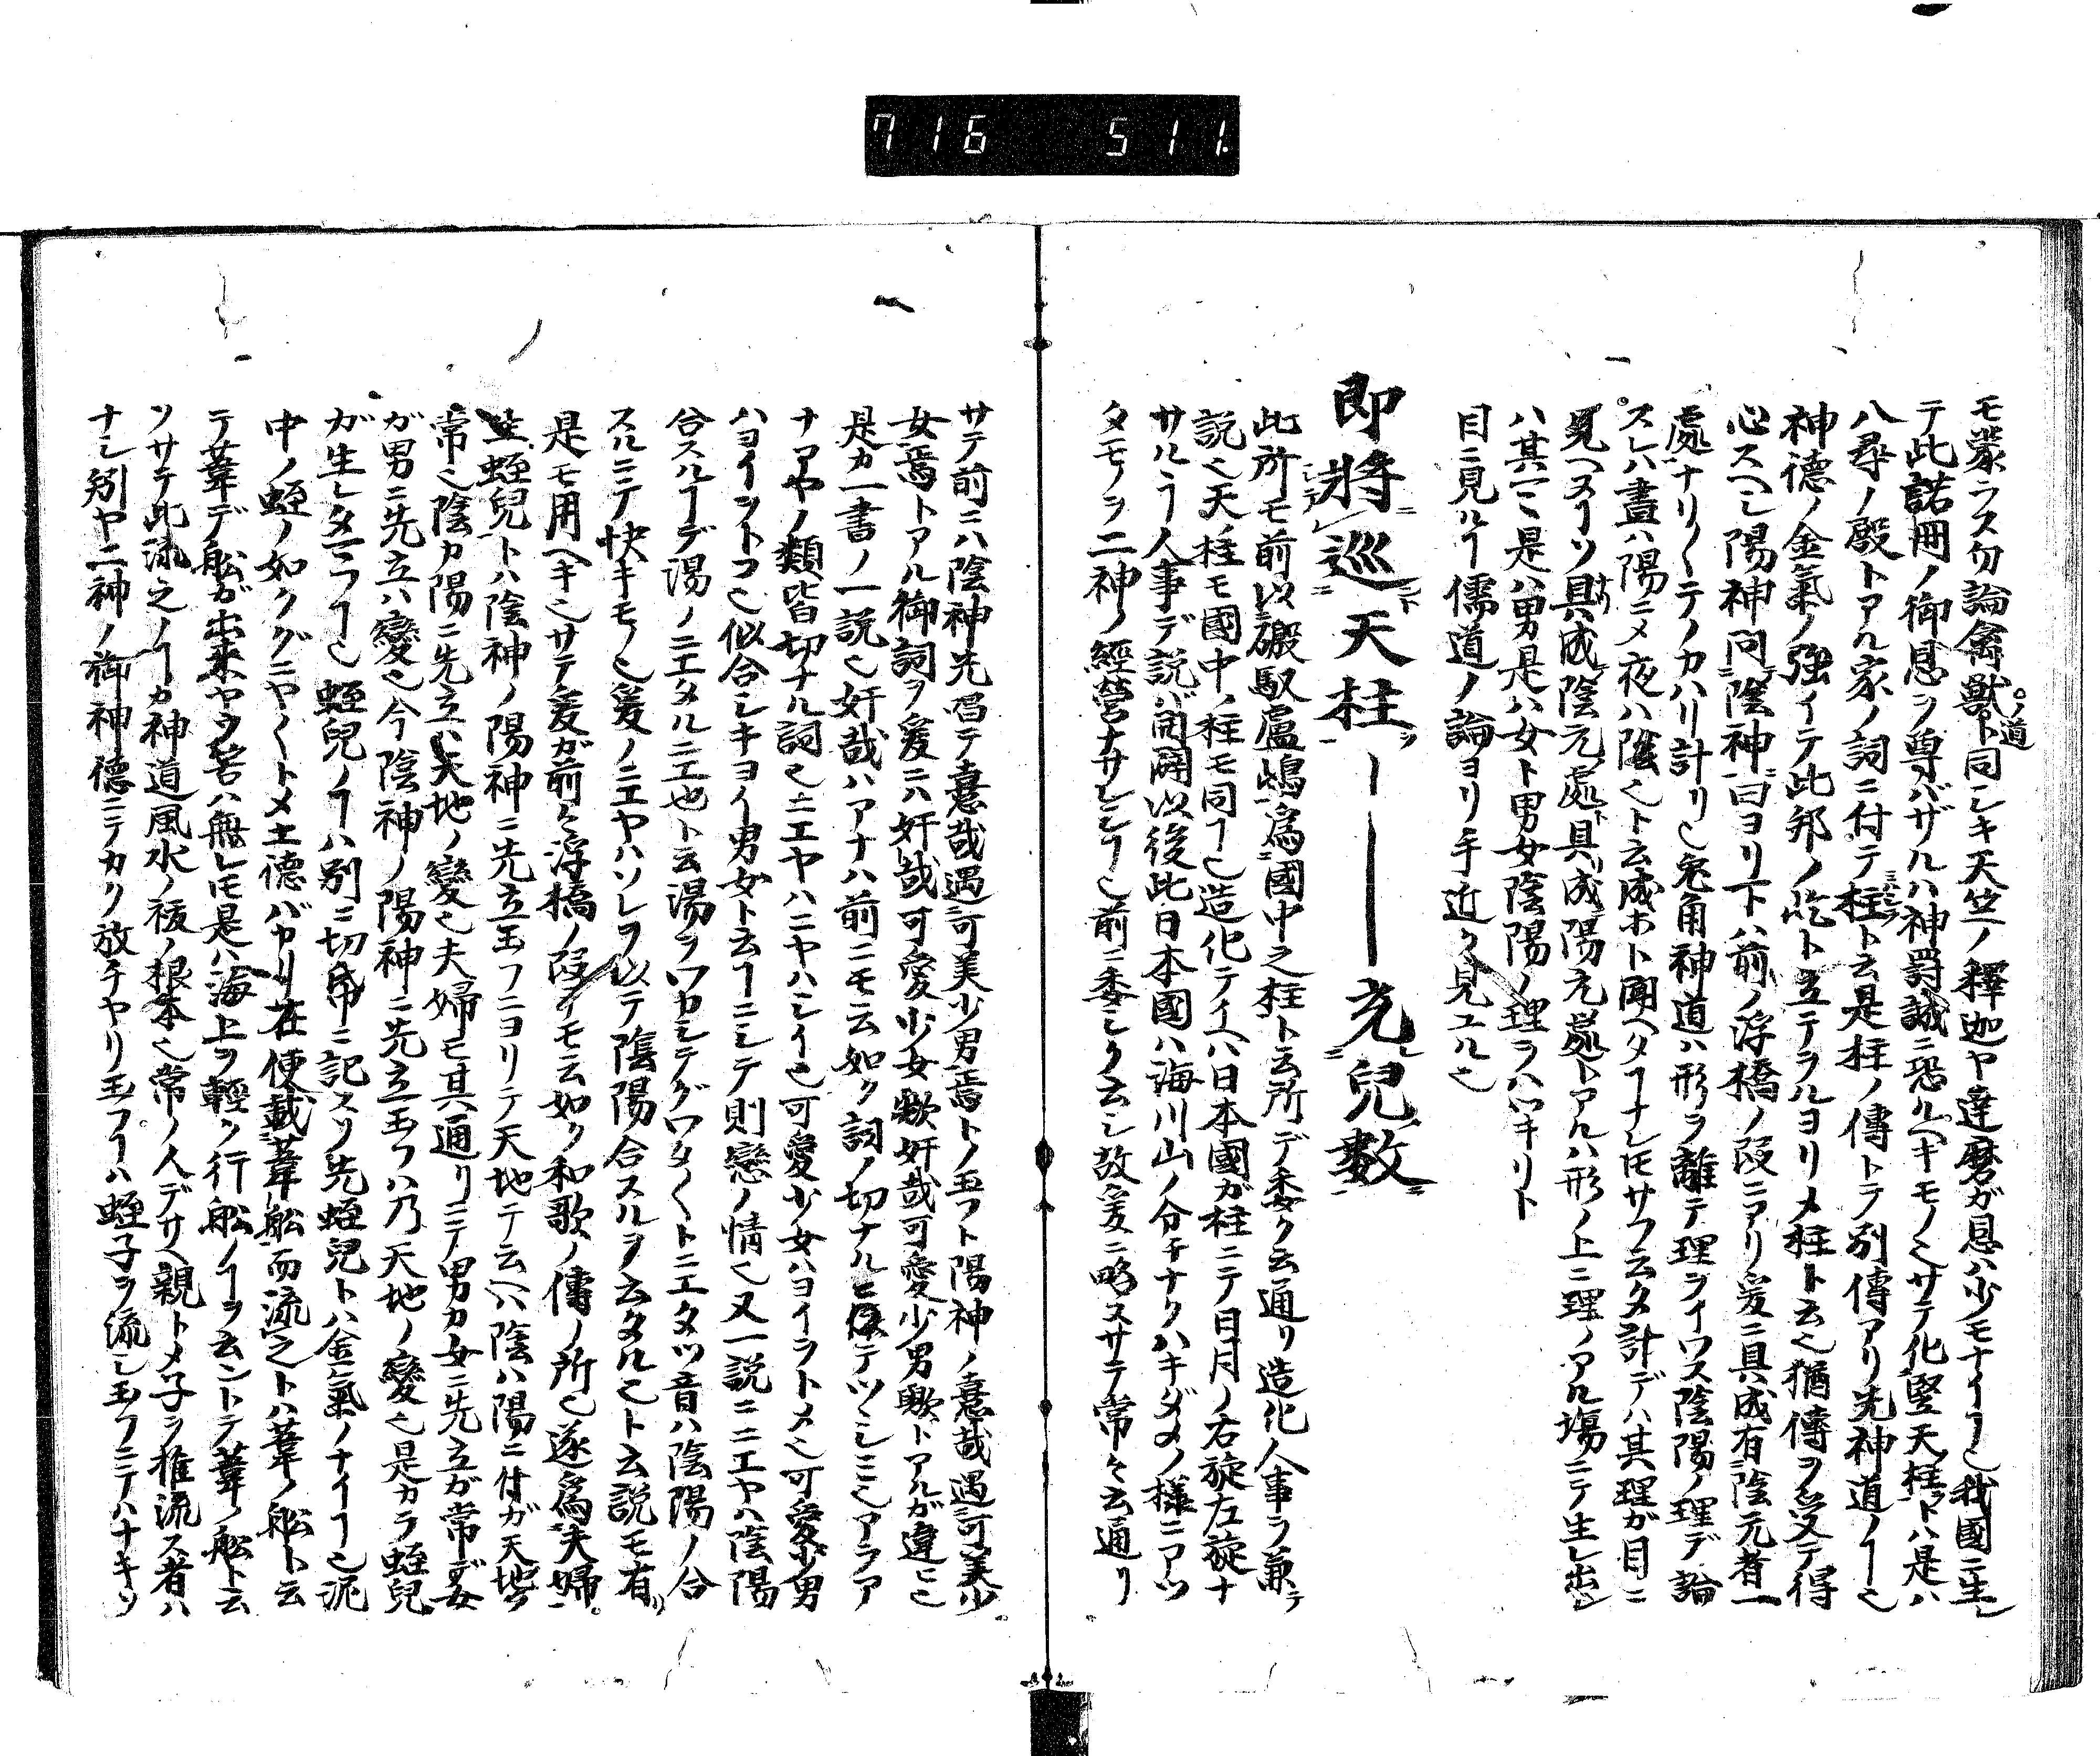 716 511.
モ蒙ラス勿論禽獣ノ道ト同シキ天竺ノ釋迦ヤ達磨ガ恩ハ少モナイヿ也我國ニ生レ
テ此諾冊ノ御恩ヲ尊バザルハ神罸誠ニ恐ルヘキモノ也サテ化竪天柱トハ是ハ
八尋ノ殿トアル家ノ詞ニ付テ柱ト云是柱ノ傳トテ別傳アリ先神道ノヿ也
神德ノ金氣ノ強イテ此邦ノ屹ト立テラルヨリメ柱ト云也猶傳ヲ受テ得
心スヘシ陽神問陰神曰ヨリ下ハ前ノ浮橋ノ段ニアリ爰ニ具成有陰元者一
處ナリ〱テノカハリ計リ也兔角神道ハ形ヲ離テ理ヲイワス陰陽ノ理デ論
スレハ晝ハ陽ニメ夜ハ陰也ト云成ホト聞ヘタヿナレモサフ云タ計デハ其理ガ目ニ
見ヘヌイソ具成陰元處ト具成陽元處トアルハ形ノ上ニ理ノアル塲ニテ生レ出レ
ハ其一ニ是ハ男是ハ女ト男女陰陽ノ理ヲハツキリト
目ニ見ルヿ儒道ノ論ヨリ手近ク見ユル也
即將巡天柱――充兒數
此所モ前以磤馭盧嶋爲國中之柱ト云所デ委ク云通リ造化人事ヲ兼テ
説也天ノ柱モ國中ノ柱モ同ヿ也造化テイヘハ日本國ガ柱ニテ日月ノ右旋左旋ナ
サルヽヿ人事デ説バ開闢以後此日本國ハ海川山ノ分チナクハキダメノ様ニアツ
タモノヲ二神ノ經営ナサレシヿ也前ニ委シク云シ故爰ニ略スサテ常々云通リ
サテ前ニハ陰神先唱テ憙哉遇可美少男焉トノ玉フト陽神ノ憙哉遇可美少
女焉トアル御詞ヲ爰ニハ妍哉可愛少女歟妍哉可愛少男歟トアルガ違ヒ也
是カ一書ノ一説也妍哉ハアナハ前ニモ云如ク詞ノ切ナルヒテツシミ也アラア
ナアヤノ類皆切ナル詞也ニエヤハニヤハシイ也可愛少女ハヨイヲトメ也可愛少男
ハヨイヲトコ也似合シキヨイ男女ト云ヿニシテ則戀ノ情也又一説ニニエヤハ陰陽
合スルヿデ湯ノニエタルニエ也ト云湯ヲワカシテグワタ〱トニエタツ音ハ陰陽ノ合
スルニテ快キモノ也爰ノニエヤハソレヲ以テ陰陽合スルヲ云タル也ト云説モ有
是モ用ヘキ也サテ爰ガ前々浮橋ノ段イモ云如ク和歌ノ傳ノ所也遂爲夫婦
生蛭兒トハ陰神ノ陽神ニ先立玉フニヨリテ天地テ云ヘハ陰ハ陽ニ付ガ天地ノ
常也陰カ陽ニ先立ハ天地ノ變也夫婦モ其通リニテ男カ女ニ先立ガ常デ女
が男ニ先立ハ變也今陰神ノ陽神ニ先立玉フハ乃天地ノ變也是カラ蛭兒
ガ生レタマフヿ也蛭兒ノヿハ別ニ切帋ニ記スソ先蛭兒トハ金氣ノナイヿ也泥
中ノ蛭ノ如クグニヤ〱トメ土德バカリ在便載葦舩而流之トハ葦ノ舩ト云
テノ葦デ舩ガ出來ヤウ筈ハ無レモ是ハ海上ヲ輕ツ行舩ノヿヲ云ントテ葦ノ舩ト云
ソサテ此流之ノヿカ神道風水ノ祓ノ根本也常ノ人デサヘ親トメ子ヲ推流ス者ハ
ナシ矧ヤ二神ノ御神德ニテカク放チヤリ玉フヿハ蛭子ヲ流シ玉フニテハナキソ